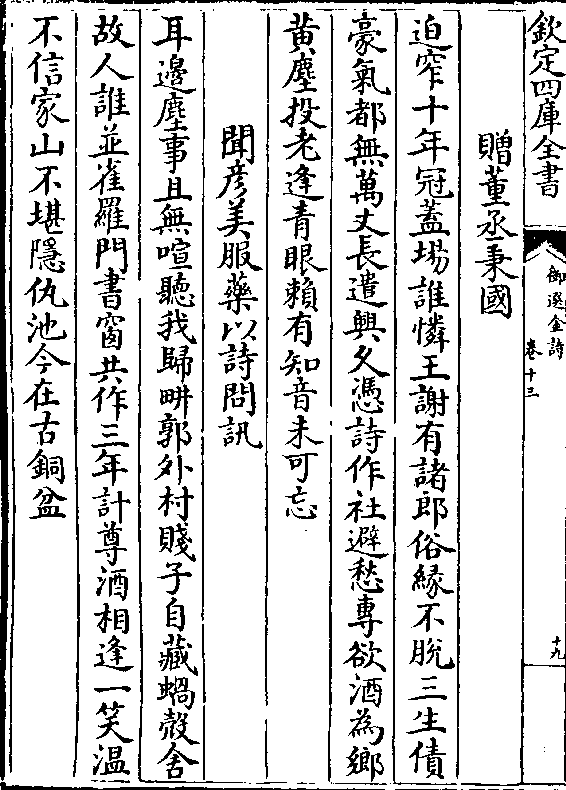 欽定四庫全書
御選金詩
卷十三
十九
贈董丞秉國
迫窄十年冠蓋場誰憐王謝有諸郎俗緣不脫三生債
豪氣都無萬丈長遣興久憑詩作社避愁專欲酒為鄉
黃塵投老逢青眼賴有知音未可忘
聞彥美服藥以詩問訊
耳邊塵事且無喧聽我歸畊郭外村賤子自藏蝸殼舍
故人誰並雀羅門書窗共作三年計尊酒相逢一笑溫
不信家山不堪隱仇池今在古銅盆